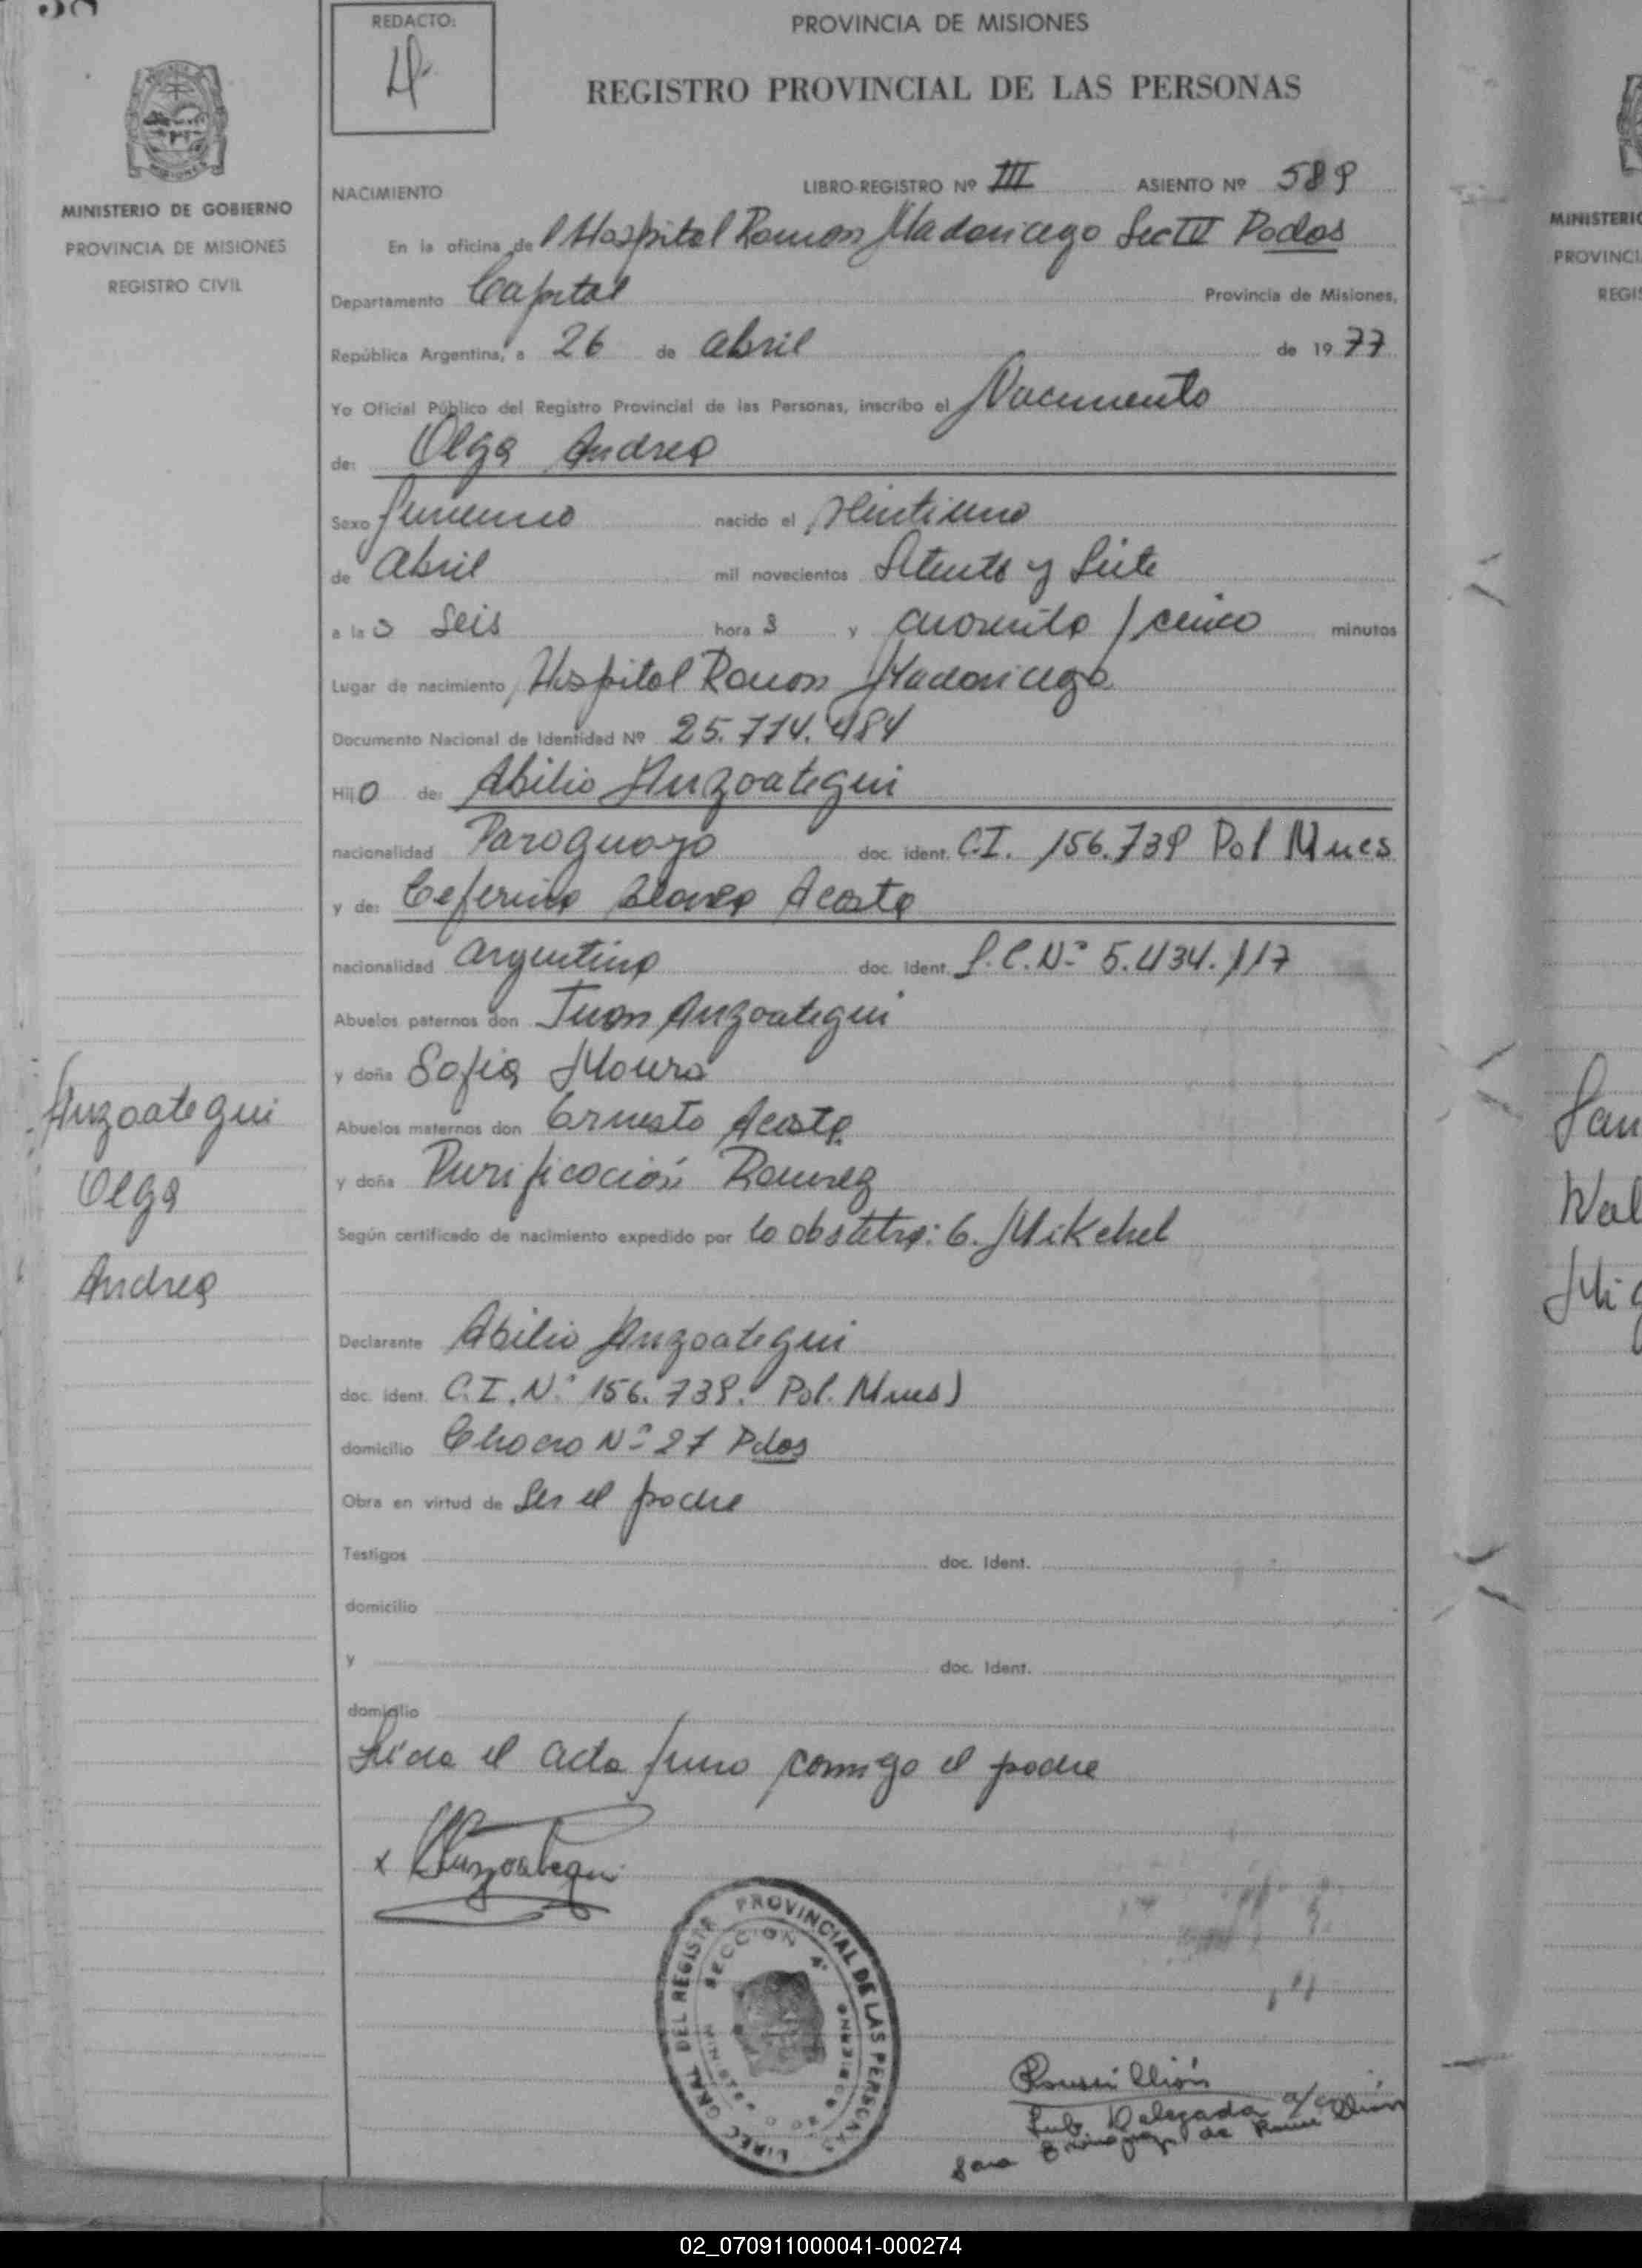 58
REDACTO:
PROVINCIA DE MISIONES
REGISTRO PROVINCIAL DE LAS PERSONAS
MINISTERIO DE GOBIERNO
PROVINCIA DE MISIONES
REGISTRO CIVIL
NACIMIENTO LIBRO-REGISTRO Nº III ASIENTO Nº 589
En la oficina del Hospital Ramon Madariaga Sec IV Posdas
Departamento Capital Provincia de Misiones,
República Argentina, a 26 de abril de 1977
Yo Oficial Público del Registro Provincial de las Personas, inscribo el Nacimiento
de: Olga Andrea
Sexo femenino nacido el veintiuno
de abril mil novecientos Setenta y Siete
a las seis horas y cuarenta / cinco minutos
Lugar de nacimiento Hospital Ramon Madariaga
Documento Nacional de Identidad Nº 25.714.484
Hijo de: Abilio Anzoategui
nacionalidad Paraguayo doc. ident. C.I. 156.739 Pol Mnes
y de: Ceferina Acosta
nacionalidad argentina doc. Ident. L.C.Nº 5.434.117
Abuelos paternos don Juan Anzoategui
y doña Sofia
Abuelos maternos don Ernesto Acosta
y doña Purificación Ramirez
Según certificado de nacimiento expedido por la obstetra: G. Mikehel
Anzoategui
Olga
Andrea
Declarante Abilio Anzoategui
doc. ident. C.I.Nº 156.739. Pol. Mnes)
domicilio Chaco Nº 27 Pdas
Obra en virtud de ser el padre
Testigos doc. Ident.
domicilio
y doc. Ident.
domicilio
Leida el acta firma conmigo el padre
x Anzoategui
DIREC. GRAL. DEL REGISTR PROVINCIAL DE LAS PERSONAS
SECCION 4ª
Sub Delegada a/c
Sara de
MINISTERIO
PROVINCI
REGIS
02_070911000041-000274